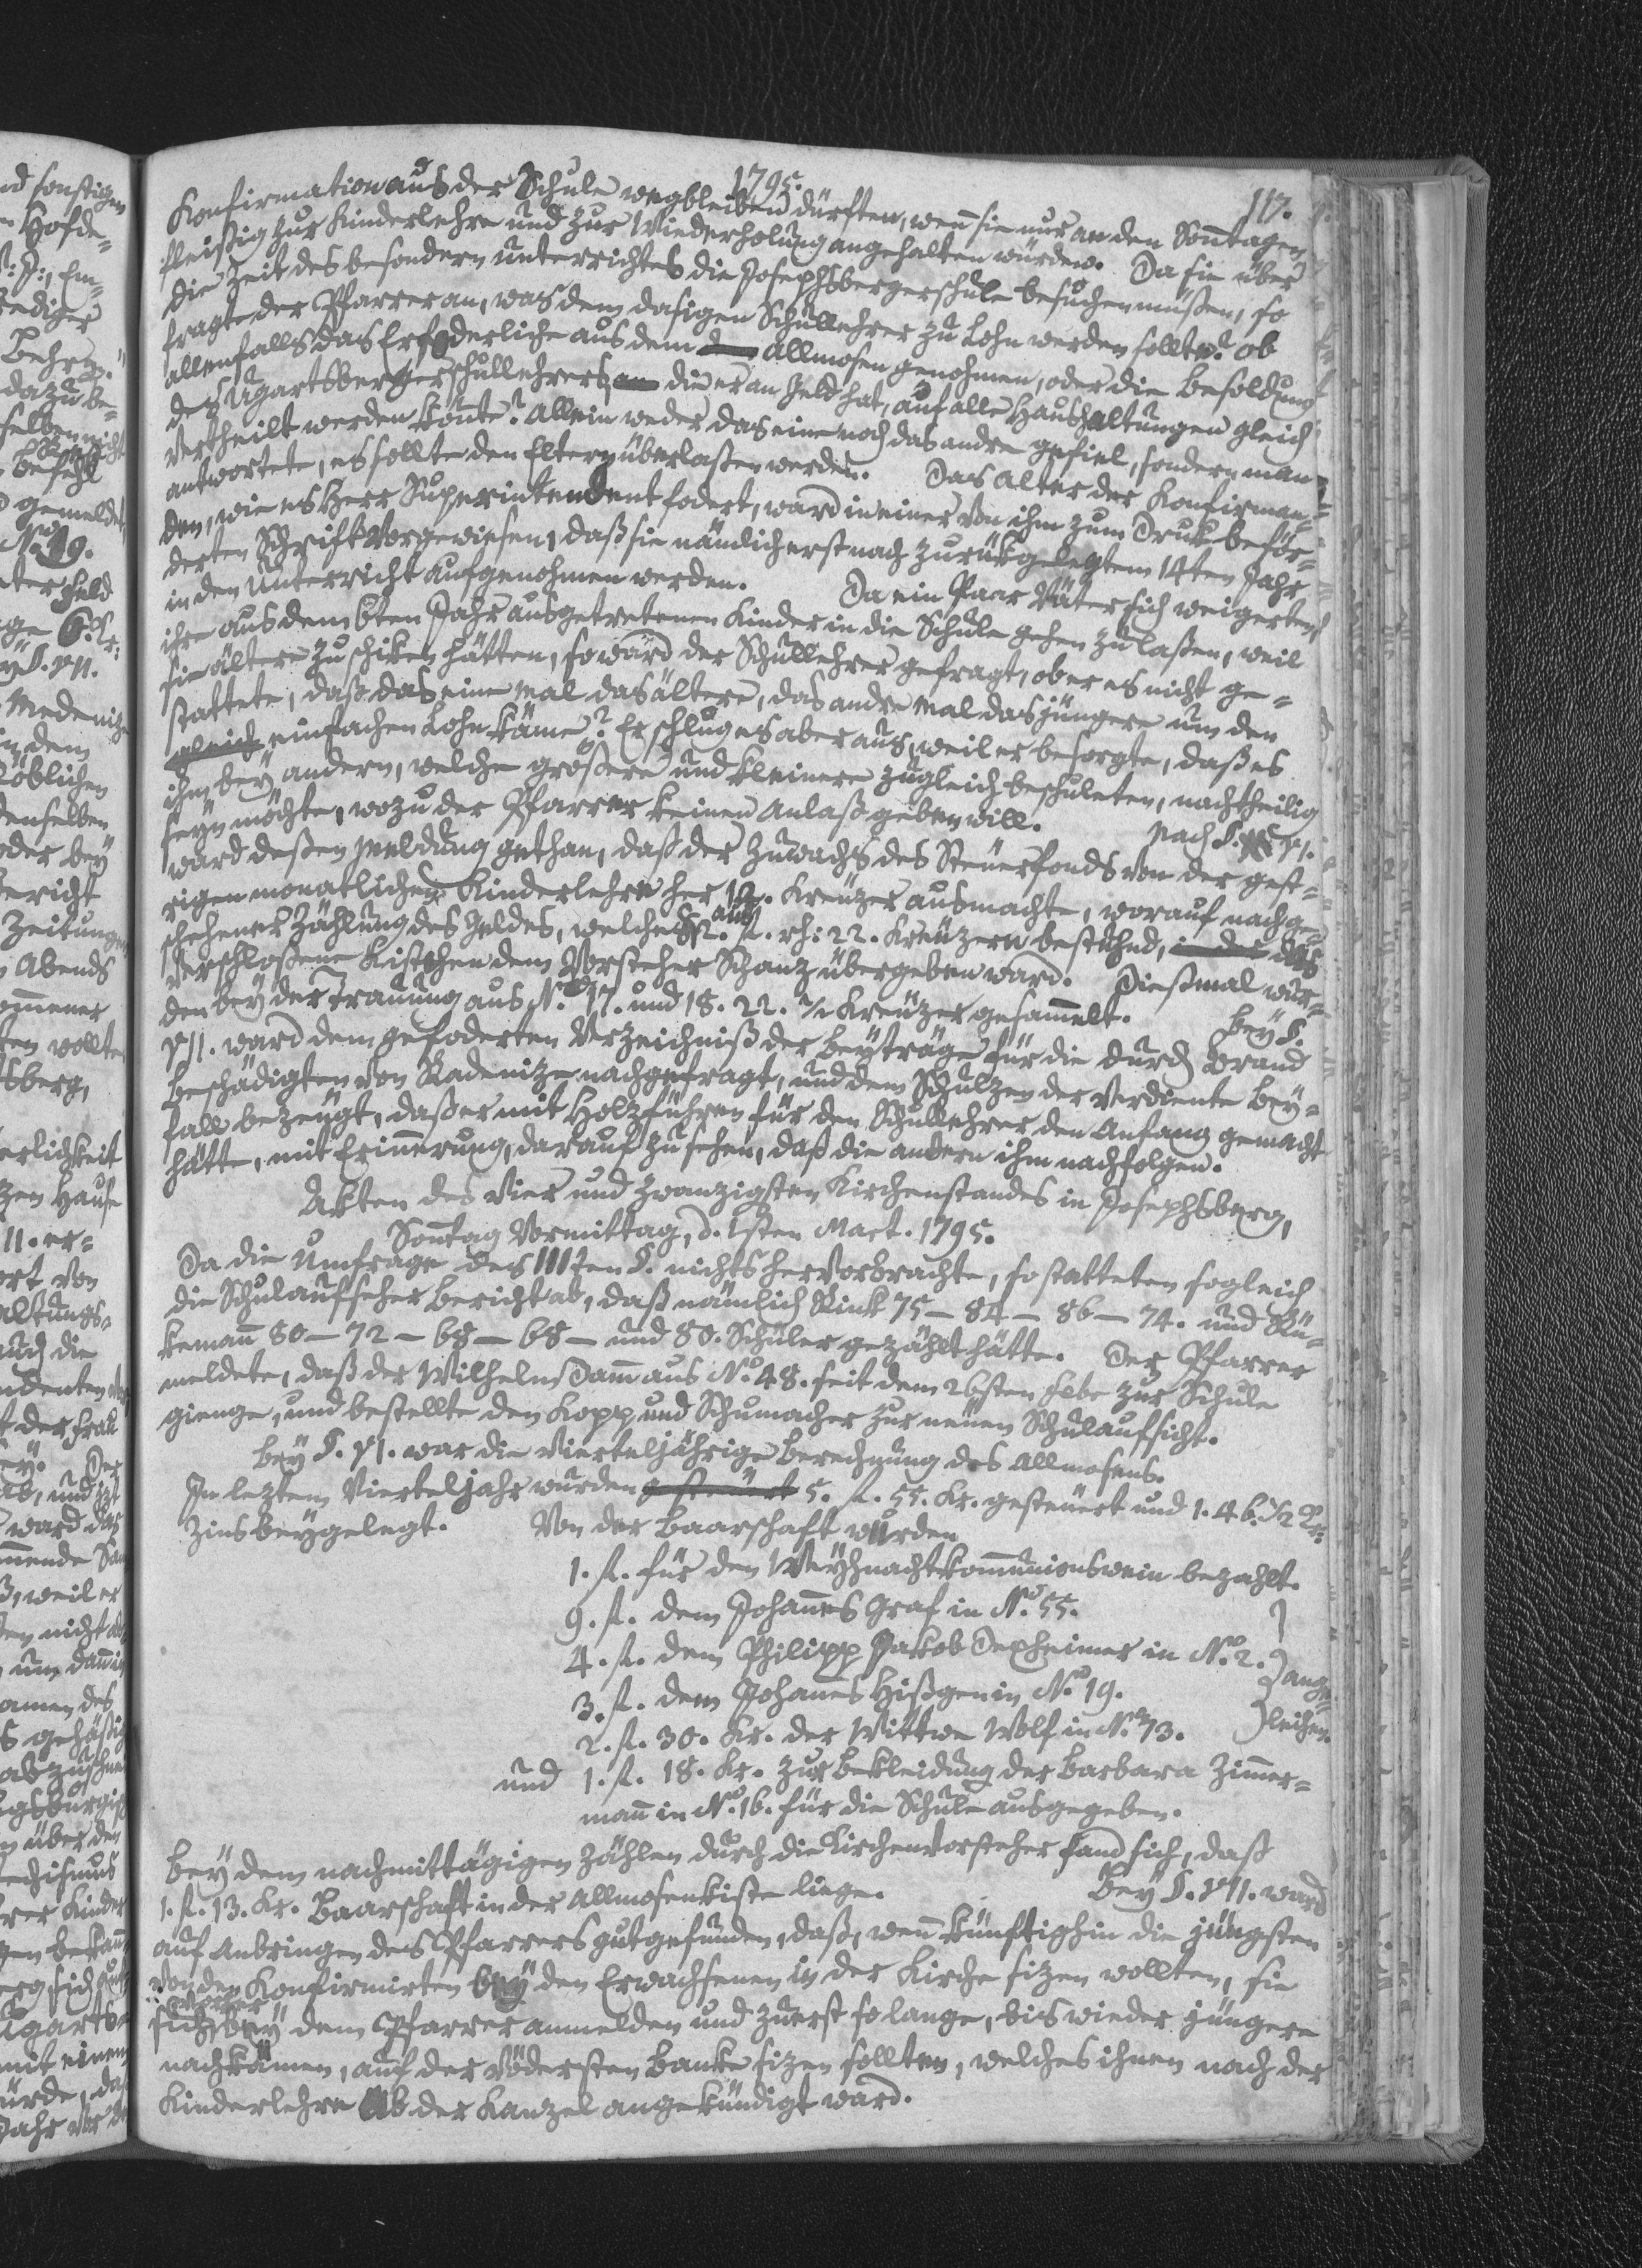 1795.
117.
Konfirmation aus der Schule wegbleiben dürften, wenn sie nur an den Sontagen
fleißig zur Kinderlehre und zur Wiederholung angehalten würden. Da sie über
die Zeit des besondern Unterrichtes die Josephsbergerschule besuchen müßen, so
fragte der Pfarrer an, was dem dasigen Schullehrer zu Lohn werden sollte? ob
allenfalls das Erfoderliche aus dem Allmosen genohmen, oder die Besoldung
des Ugartsbergerschullehrers, die er an Geld hat, auf alle Haushaltungen gleich
vertheilt werden könte? Allein weder das eine noch das andre gefiel, sondern man
antwortete, es sollte den Eltern überlaßen werden. Das Alter der Konfirman=
den, wie es Herr Superintendent fodert, ward in einer von ihm zum Druk beför=
derten Schrift vorgewiesen, daß sie nämlich erst nach zurükgelegtem 14ten Jahr
in den Unterricht aufgenohmen werden. Da ein Paar Väter sich weigerten,
ihre aus dem 6ten Jahr ausgetretenen Kinder in die Schule gehen zu laßen, weil
sie ältere zu schiken hätten, so ward der Schullehrer gefragt, ob er es nicht ge=
stattete, daß das eine mal das ältere, das andre mal das jüngere um den
gleich einfachen Lohn käme? Er schlug es aber aus, weil er besorgte, daß es
ihm bey andern, welche größere und kleinere zugleich beschuleten, nachtheilig
seyn möchte, wozu der Pfarrer keinen Anlaß geben will. Nach §. VI.
ward deßen Meldung gethan, daß der Zuwachs des Steuerfonds von der gest=
rigen monatlichen Kinderlehre her 12. Kreuzer ausmachte, worauf nach ge=
schehener Zählung des Geldes, welches aus 2. fl. rh: 22. Kreuzern bestuhnd, das
verschloßene Kistchen dem Vorsteher Schanz übergeben ward. Dießmal wur=
den bey der Trauung aus No. 17. und 18. 22. ½ Kreuzer gesammelt. Bey §.
VII. ward dem gefoderten Verzeichniß der Beyträge für die durch Brand
beschädigten von Radenitze nachgefragt, und dem Schulzen der verdiente Bey=
fall bezeugt, daß er mit Holzführen für den Schullehrer den Anfang gemacht
hätte, mit Erinnerung, darauf zu sehen, daß die andern ihm nachfolgen.
Akten des vier und zwanzigsten Kirchenstandes in Josephsberg,
Sontag Vormittag, d. 1sten Mart. 1795.
Da die Umfrage des IIIten §. nichts hervorbrachte, so statteten sogleich
die Schulaufseher Bericht ab, daß nämlich Rink 75 – 84 – 86 – 74. und Rü=
kemann 80 – 72 – 68 – 68 – und 80. Schüler gezählt hätte. Der Pfarrer
meldete, daß der Wilhelm Damm aus No. 48. seit dem 26sten Febr zur Schule
gienge, und bestellte den Kopp und Schumacher zur neuen Schulaufsicht.
Bey §. VI. war die vierteljährige Berechnung des Allmosens.
Im leztem Vierteljahr wurden gesteuert 5. fl. 55. Kr. gesteuert und 1. 46. ½ Kr.
Zins beygelegt. Von der Baarschaft wurden
1. fl. für den Weyhnachtkommunionswein bezahlt.
9. fl. dem Johannes Graf in No. 55.
4. fl. dem Philipp Jakob Dexheimer in No. 2. } ange=
3. fl. dem Johannes Hißgen in No. 19.
2. fl. 30. Kr. der Wittwe Wolf in No. 73. } leihen.
und 1. fl. 18. Kr. zur Bekleidung der Barbara Zimmer=
mann in No. 16. für die Schule ausgegeben.
Bey dem nachmittägigen Zählen durch die Kirchenvorsteher fand sich, daß
1. fl. 13. Kr. Baarschaft in der Allmosenkiste liege. Bey §. VII. ward
auf Anbringen des Pfarrers gutgefunden, daß, wenn künftighin die jüngsten
von den Konfirmirten bey den Erwachsenen in der Kirche sizen wollten, sie
sich vorher bey dem Pfarrer anmelden und zuerst so lange, bis wieder jüngere
nachkämen, auf der vödersten Banke sizen sollten, welches ihnen nach der
Kinderlehre ab der Kanzel angekündigt ward.